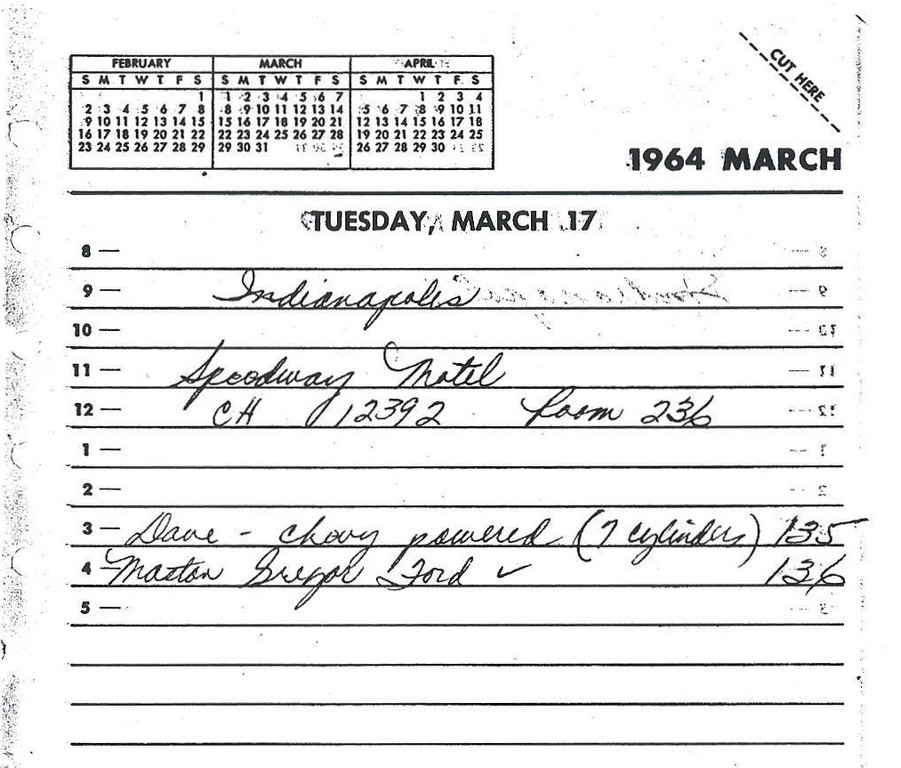 FEBRUARY MARCH APRIL
S M T W T F S S M T W T F S S M T W T F S
1 1 2 3 4 5 6 7 1 2 3 4
2 3 4 5 6 7 8 8 9 10 11 12 13 14 5 6 7 8 9 10 11
9 10 11 12 13 14 15 15 16 17 18 19 20 21 12 13 14 15 16 17 18
16 17 18 19 20 21 22 22 23 24 25 26 27 28 19 20 21 22 23 24 25
23 24 25 26 27 28 29 29 30 31 26 27 28 29 30
CUT HERE
1964 MARCH
TUESDAY, MARCH 17
8 —
9 — Indianapolis
10 —
11 — Speedway Motel
12 — CH 12392 Room 236
1 —
2 —
3 — Dave - chevy powered (7 cylinders) 135
4 — Masten Gregor Ford ✓ 136
5 —